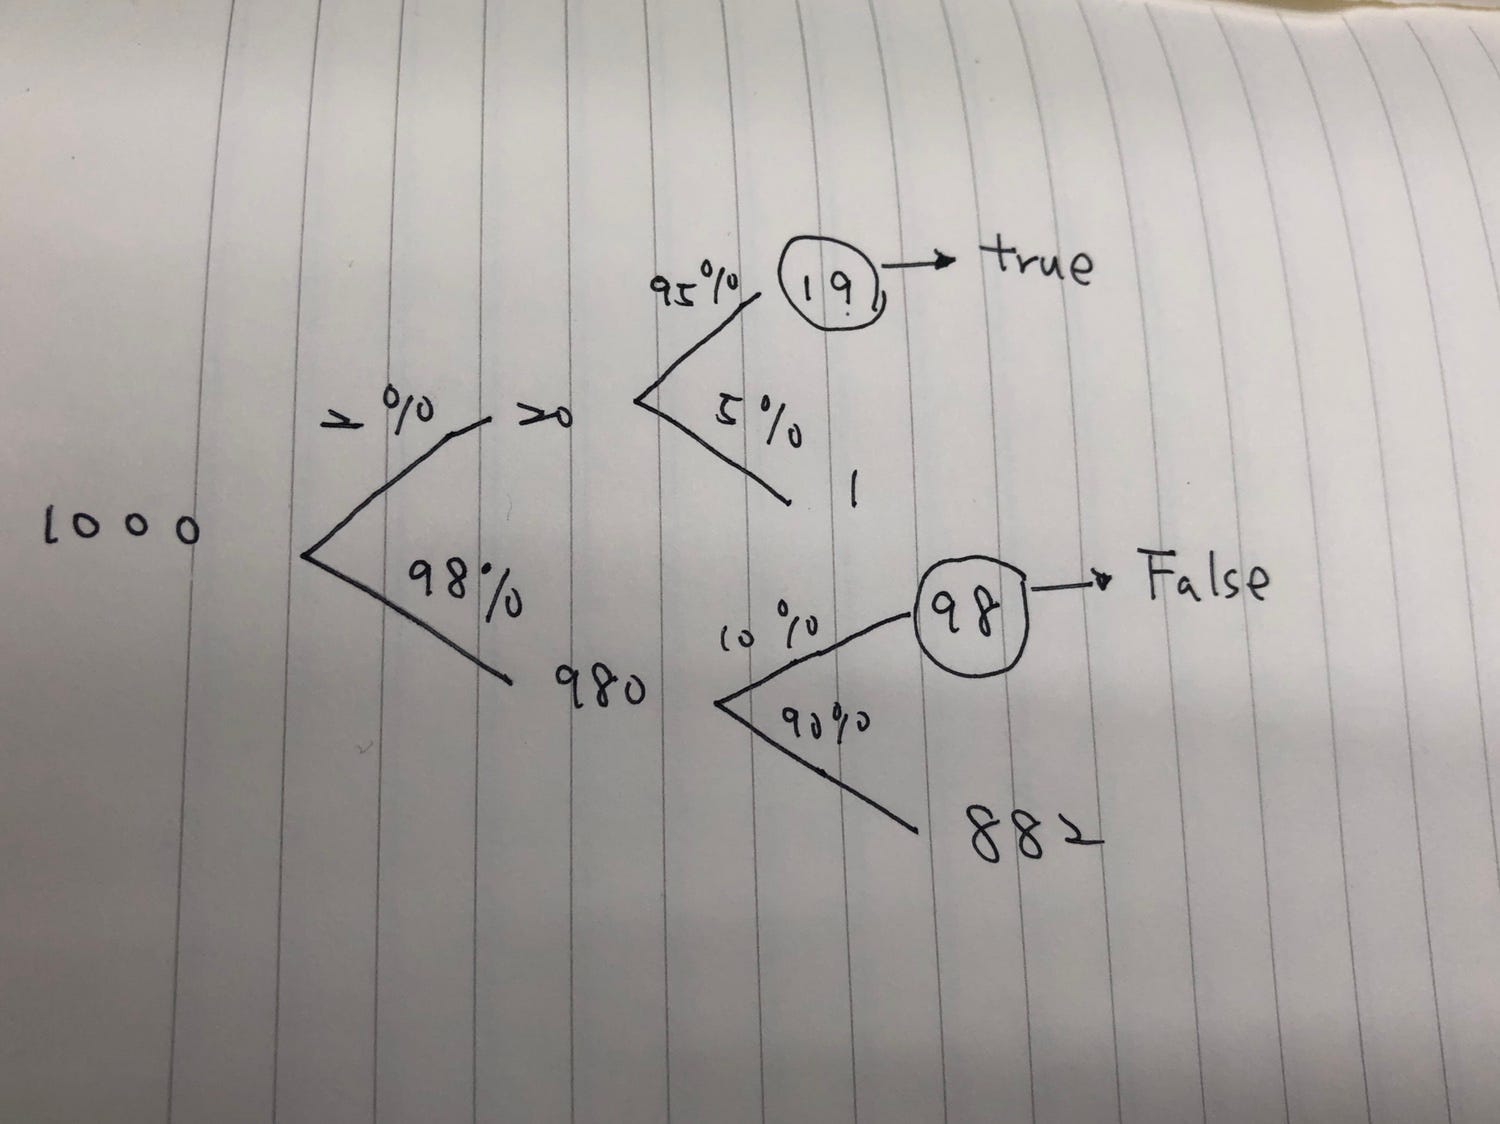 95% 19 → true
2% 20
5%
1
1000
98%
10% 98 → False
980
90%
882